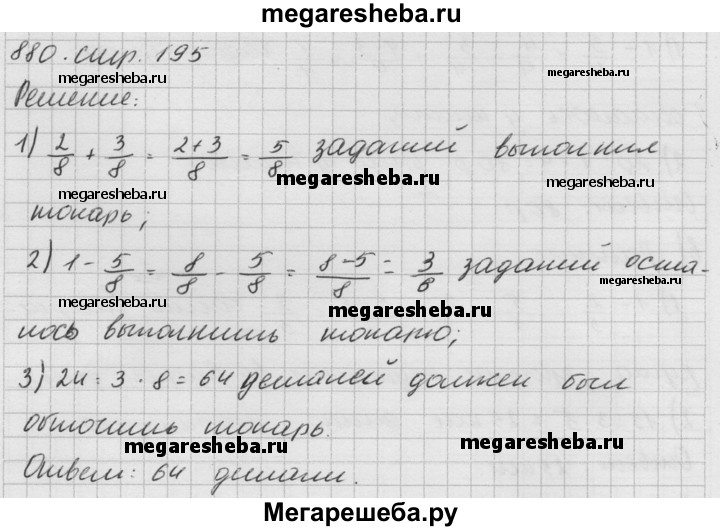 megaresheba.ru
880. стр. 195
megaresheba.ru megaresheba.ru
Решение:
1) 2/8 + 3/8 = 2+3/8 = 5/8 заданий выполнил
megaresheba.ru megaresheba.ru megaresheba.ru
токарь;
2) 1 - 5/8 = 8/8 - 5/8 = 8-5/8 = 3/8 заданий оста-
megaresheba.ru megaresheba.ru megaresheba.ru
лось выполнить токарю;
3) 24 : 3 · 8 = 64 деталей должен был
обточить токарь.
megaresheba.ru megaresheba.ru
Ответ: 64 детали.
Мегарешеба.ру